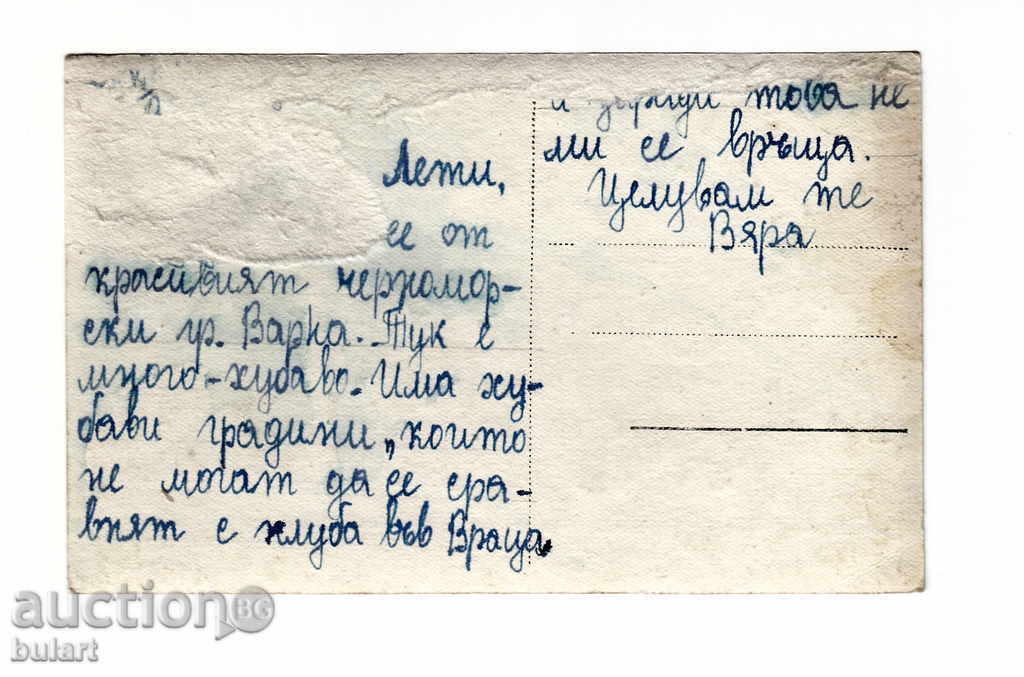 Лети,
се от
красивият черномор-
ски гр. Варна. Тук е
много-хубаво. Има ху-
бави градини, които
не могат да се сра-
внят с клуба във Враца
и заради това не
ми се връща.
Целувам те
Вяра
auction BG
bulart